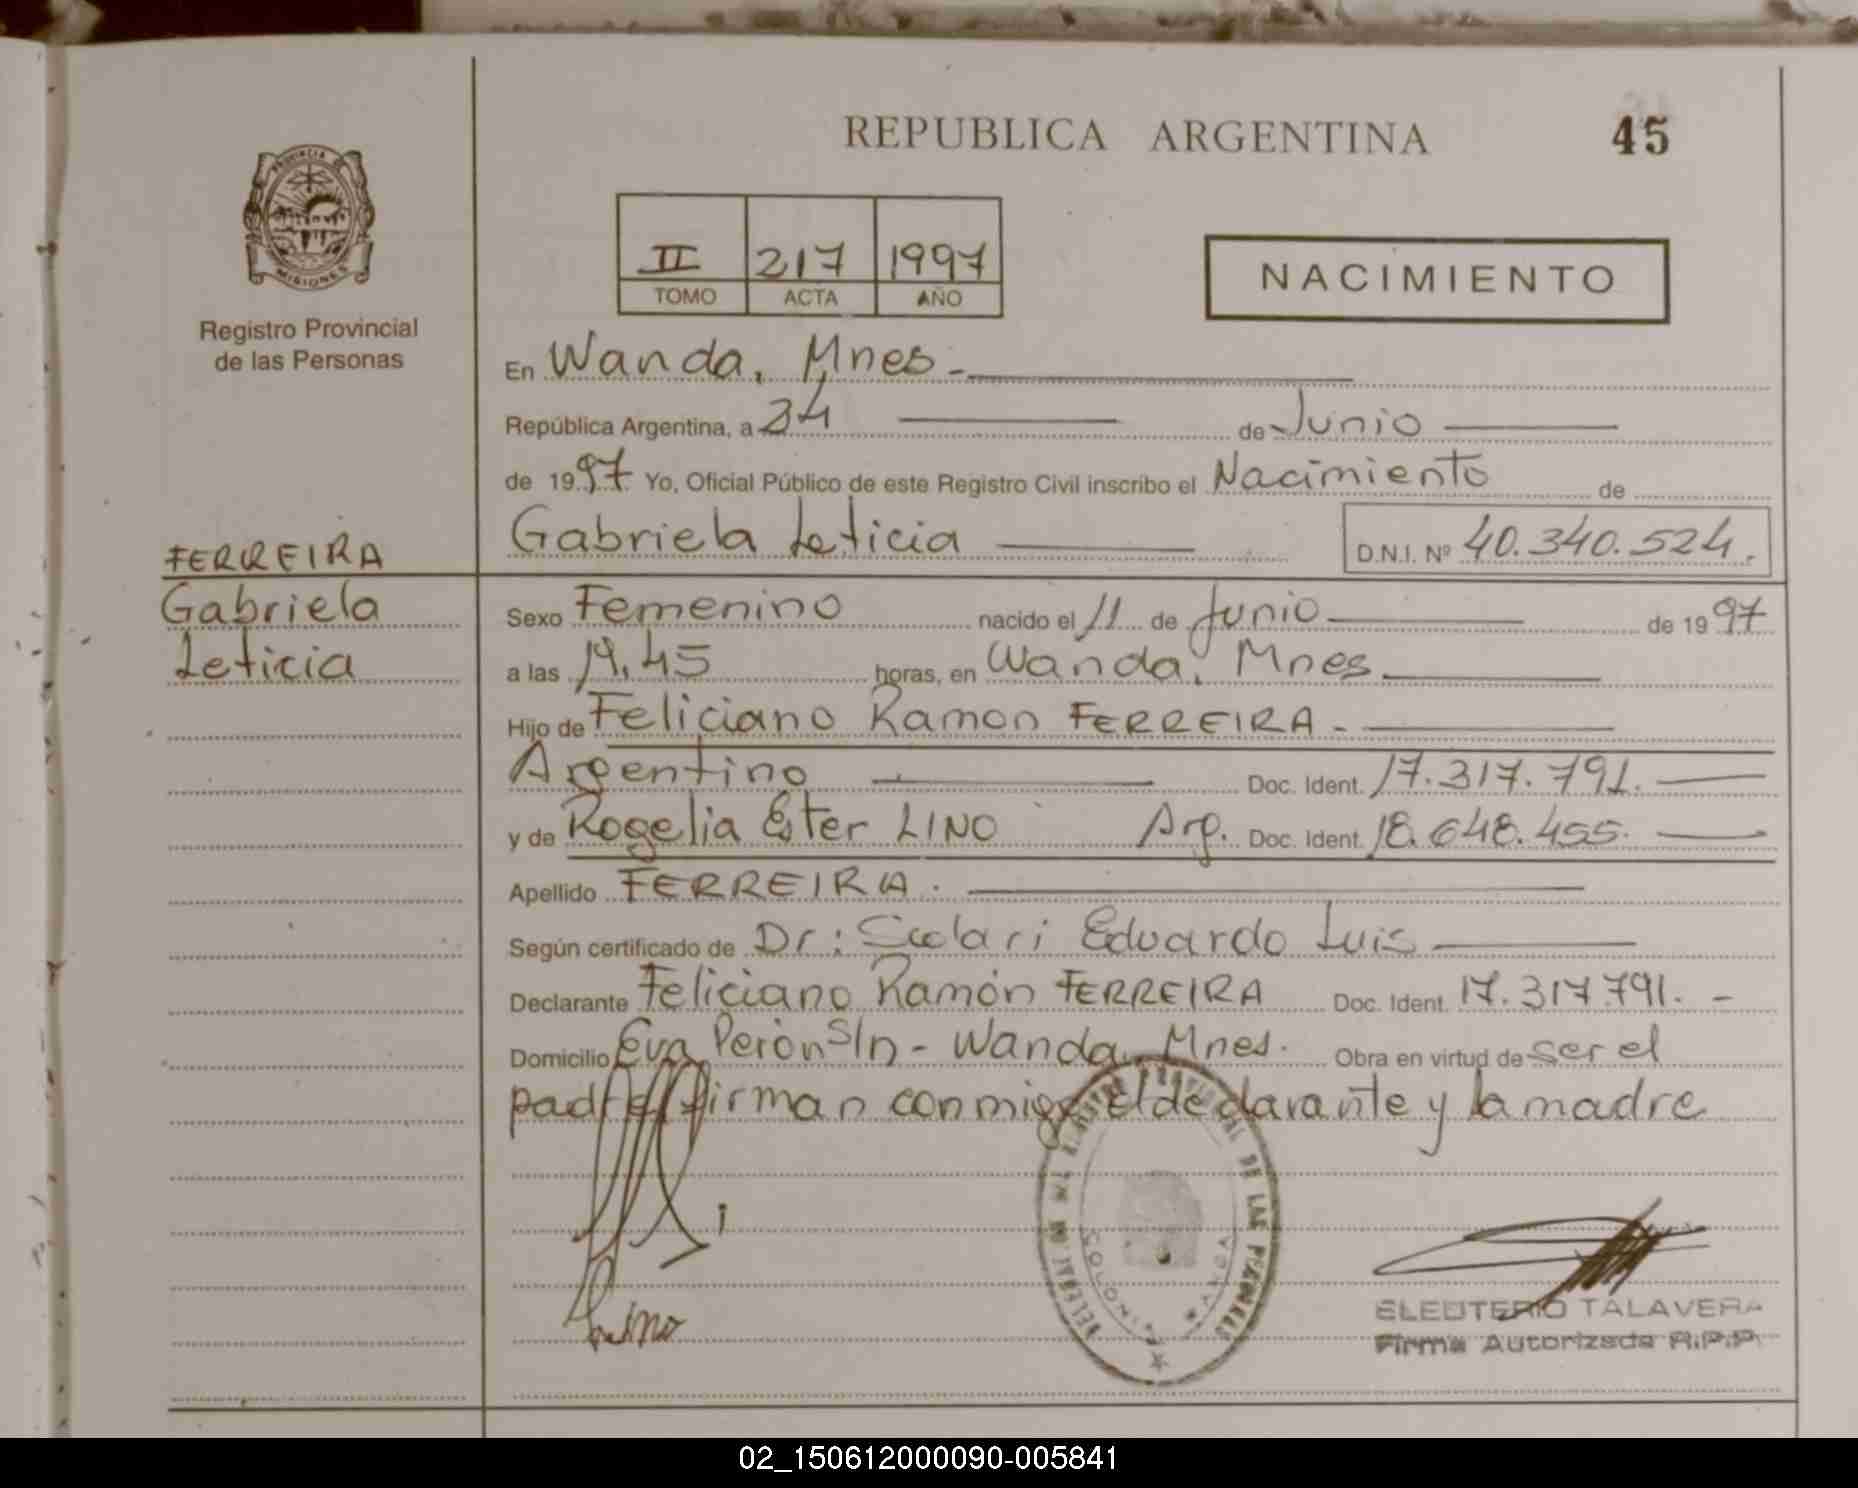 REPUBLICA ARGENTINA
45
PROVINCIA DE
MISIONES
Registro Provincial
de las Personas
II 217 1997
TOMO ACTA AÑO
NACIMIENTO
En Wanda, Mnes.
República Argentina, a 24 de Junio
de 1997 Yo, Oficial Público de este Registro Civil inscribo el Nacimiento de
Gabriela Leticia D.N.I. Nº 40.340.524.
FERREIRA
Gabriela
Leticia
Sexo Femenino nacido el 11 de Junio de 1997
a las 19.45 horas, en Wanda, Mnes
Hijo de Feliciano Ramon FERREIRA.
Argentino Doc. Ident. 17.317.791.
y de Rogelia Ester LINO Arg. Doc. Ident. 18.648.455.
Apellido FERREIRA.
Según certificado de Dr: Scolari Eduardo Luis
Declarante Feliciano Ramón FERREIRA Doc. Ident. 17.317.791. -
Domicilio Eva Perón S/n - Wanda, Mnes. Obra en virtud de ser el
padre firman conmigo el declarante y la madre
DE LAS PERSONAS
COLONIA WANDA
Lino
ELEUTERIO TALAVERA
Firma Autorizada R.P.P.
02_150612000090-005841